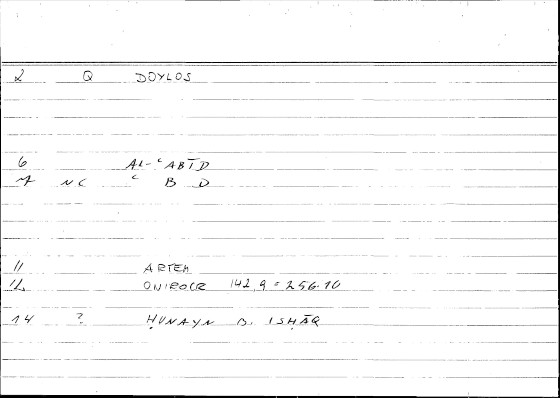 2 Q DOYLOS
6 AL-ʿABĪD
7 NC ʿ B D
11 ARTEM
12 ONIROCR 142,9 = 256.10
14 ? ḤUNAYN B. ISḤĀQ